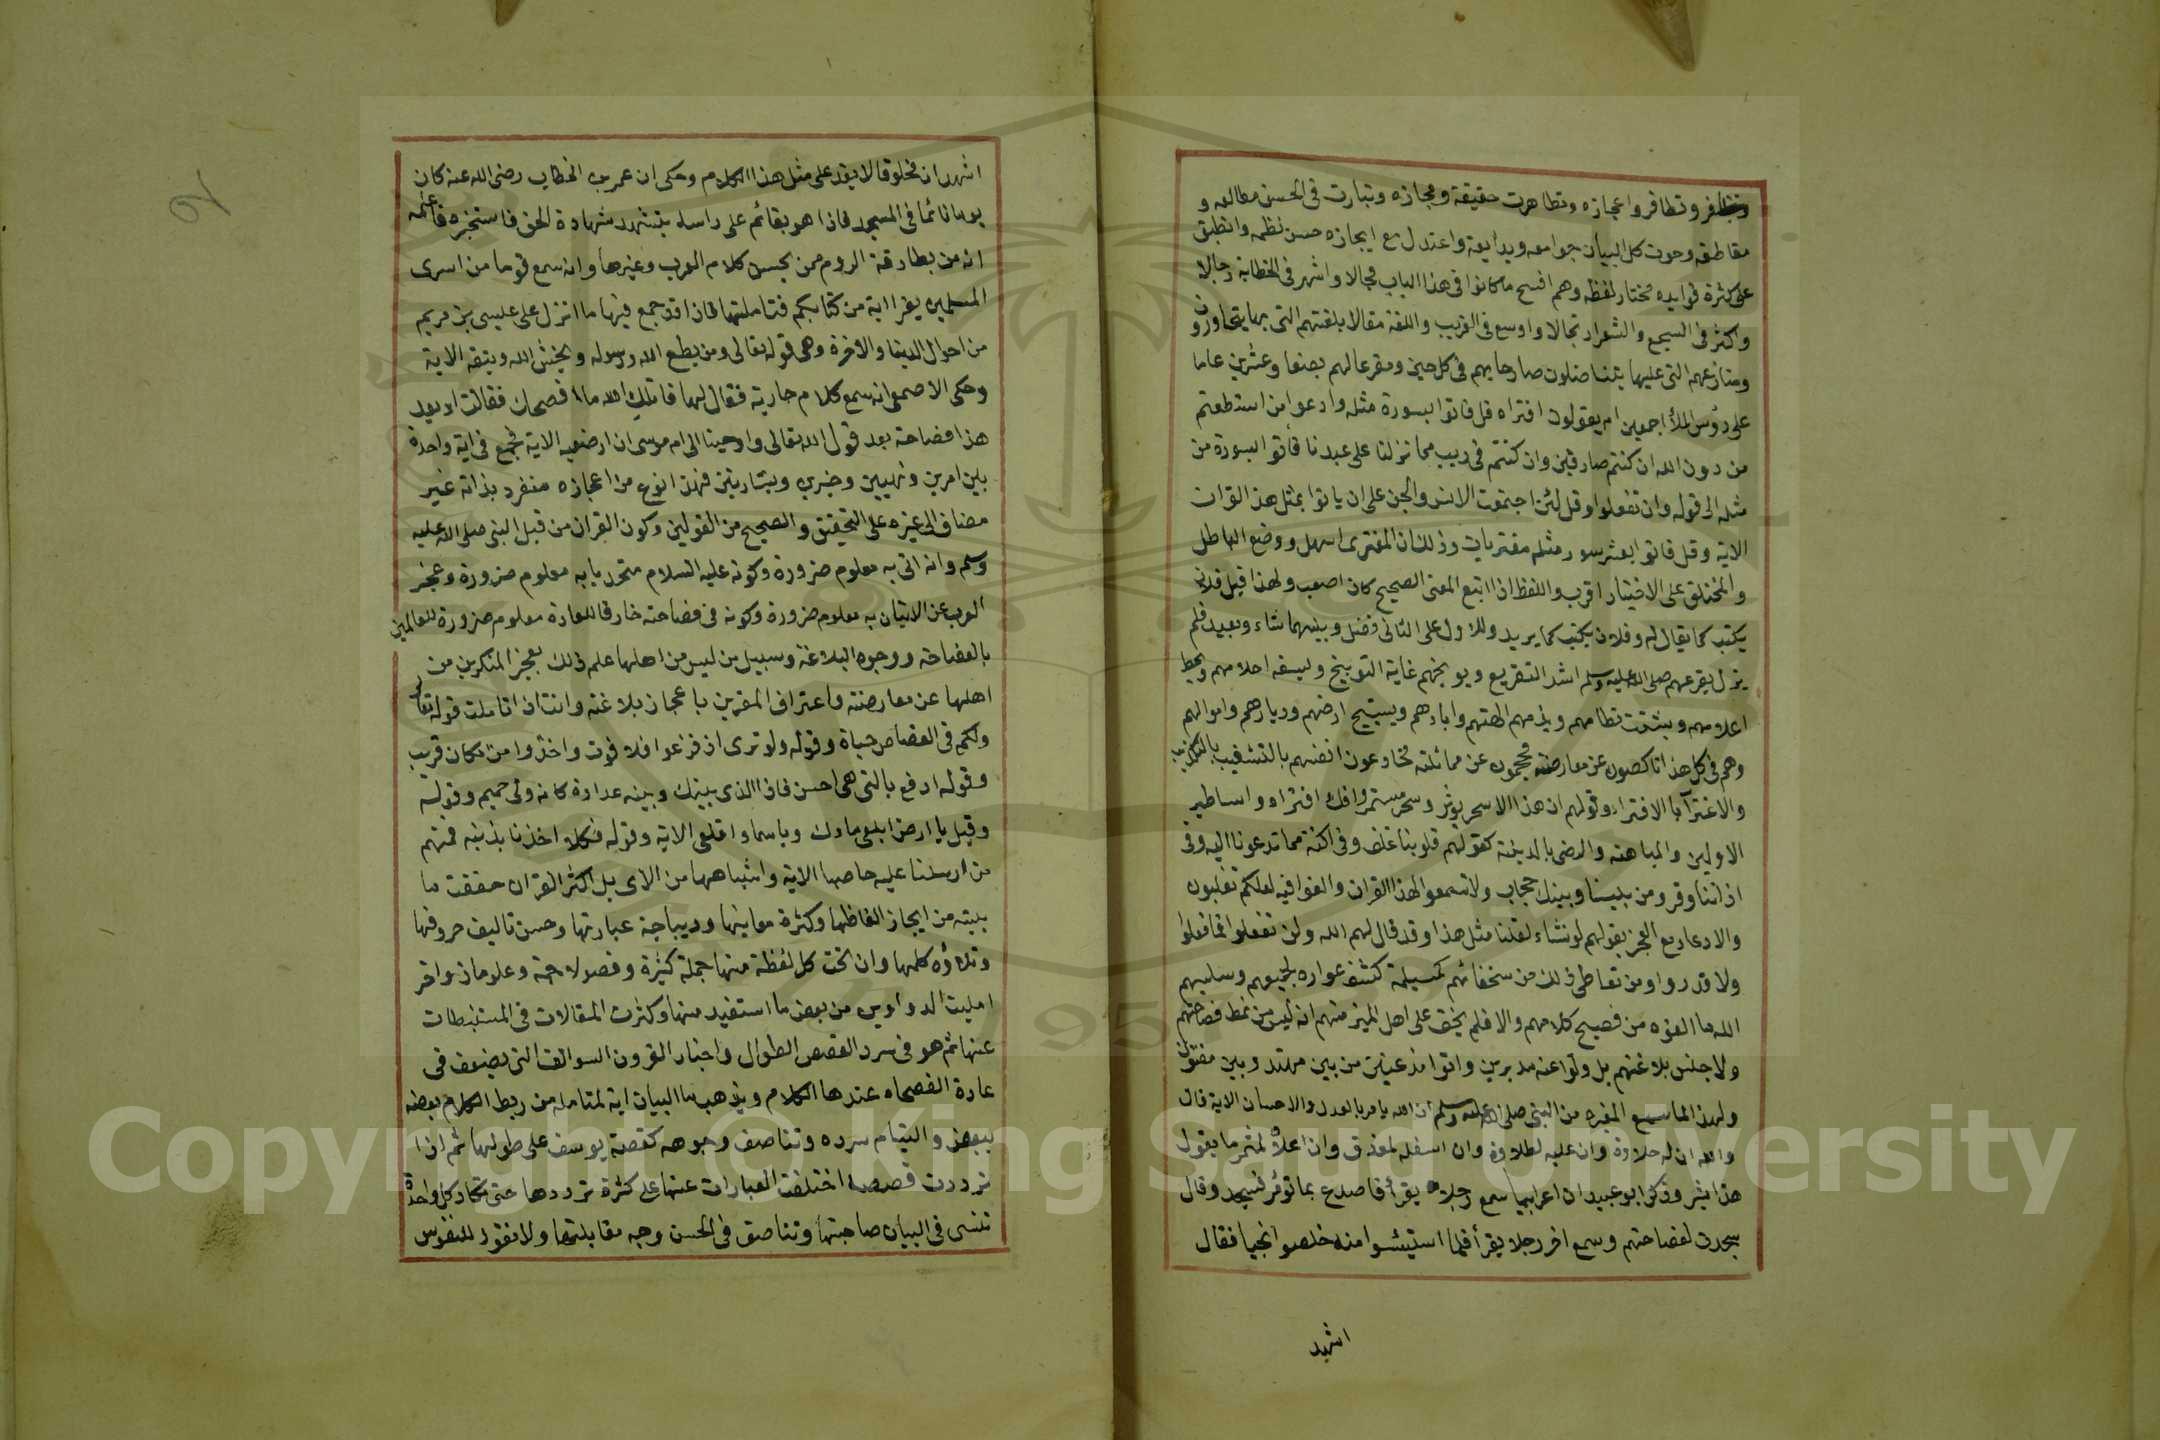 وتظافر وتظافروا عجازه وتظاهرت حقيقة ومجازه وتبارت في الحسن مطالعه و
مقاطعه وحوت كل البيان جوامعه وبدايعه واعتدل مع ايجازه حسن نظمه وانطبق
على كثرة فوايده مختار لفظه وهم افسح ما كانوا في هذا الباب مجالا واشهر في الخطابة رجالا
واكثر في السجع والشعر ارتجالا واوسع في الغريب واللغة مقالا بلغتهم التي بها يتحاورون
ومنازعهم التي عليها يتناضلون صارخا بهم في كل حين ومقرعا لهم بضعا وعشرين عاما
على رؤس الملأ اجمعين ام يقولون افتراه قل فاتوا بسورة مثله وادعوا من استطعتم
من دون الله ان كنتم صادقين وان كنتم في ريب مما نزلنا على عبدنا فأتوا بسورة من
مثله الى قوله ولن تفعلوا وقل لئن اجتمعت الانس والجن على ان ياتوا بمثل هذا القران
الاية وقل فاتوا بعشر سور مثله مفتريات وذلك ان المفترى اسهل ووضع الباطل
والمختلق على الاختيار اقرب واللفظ اذا اتبع المعنى الصحيح كان اصعب ولهذا قيل فلان
يكتب كما يقال له وفلان يكتب كما يريد وللاول على الثاني فضل وبينهما شاء وبعيد فلم
يزل يقرعهم صلى الله عليه وسلم اشد التقريع ويوبخهم غاية التوبيخ ويسفه احلامهم ويحط
اعلامهم ويشتت نظامهم ويذم الهتهم واباءهم ويستبيح ارضهم وديارهم واموالهم
وهم في كل هذا ناكصون عن معارضته محجمون عن مماثلته مخادعون انفسهم بالتشغيب بالتكذيب
والاغترا بالافتراء وقولهم ان هذا الا سحر يوثر وسحر مستمر وافك افتراه واساطير
الاولين والمباهتة والرضى بالدنيئة كقولهم قلوبنا غلف وفي اكنة مما تدعونا اليه وفي
اذاننا وقر ومن بيننا وبينك حجاب ولا تسمعوا لهذا القران والغوا فيه لعلكم تغلبون
والادعاء مع العجز بقولهم لو نشاء لقلنا مثل هذا وقد قال لهم الله ولن تفعلوا فما فعلوا
ولا قدروا ومن تعاطى ذلك من سخفائهم كمسيلمة كشف عواره لجميعهم وسلبهم
الله ما الفوه من فصيح كلامهم والا فلم يخف على اهل الميز منهم انه ليس من نمط فصاحتهم
ولا جنس بلاغتهم بل ولوا عنه مدبرين واتوا مذعنين من بين مهتد وبين مفتون
ولهذا لما سمع المغيرة من النبي صلى الله عليه وسلم ان الله يامر بالعدل والاحسان الاية قال
والله ان له حلاوة وان عليه لطلاوة وان اسفله لمغدق وان اعلاه لمثمر ما يقول
هذا بشر وذكر ابو عبيد ان اعرابيا سمع رجلا يقرأ فاصدع بما تؤمر فسجد وقال
سجدت لفصاحته وسمع اخر رجلا يقرأ فلما استيئسوا منه خلصوا نجيا فقال
اشهد
اشهد ان مخلوقا لا يقدر على مثل هذا الكلام وحكى ان عمر بن الخطاب رضي الله عنه كان
يوما نائما في المسجد فاذا هو بقائم على راسه يتشهد شهادة الحق فاستخبره فاعلمه
انه من بطارقة الروم ممن يحسن كلام العرب وغيرها وانه سمع قوما من اسرى
المسلمين يقرا اية من كتابكم فتاملتها فاذا قد جمع فيها ما انزل على عيسى بن مريم
من احوال الدنيا والاخرة وهي قوله تعالى ومن يطع الله ورسوله ويخش الله ويتقه الاية
وحكى الاصمعي انه سمع كلام جارية فقال لها قاتلك الله ما افصحك فقالت او يعد
هذا فصاحة بعد قول الله تعالى واوحينا الى ام موسى ان ارضعيه الاية فجمع في اية واحدة
بين امرين ونهيين وخبرين وبشارتين فهذا نوع من اعجازه منفرد بذاته غير
مضاف الى غيره على التحقيق والصحيح من القولين وكون القران من قبل النبي صلى الله عليه
وسلم وانه اتى به معلوم ضرورة وكونه عليه السلام متحديا به معلوم ضرورة وعجز
العرب عن الاتيان به معلوم ضرورة وكونه في فصاحته خارقا للعادة معلوم ضرورة للعالمين
بالفصاحة ووجوه البلاغة وسبيل من ليس من اهلها علم ذلك بعجز المنكرين من
اهلها عن معارضته واعتراف المقرين باعجاز بلاغته وانت اذا تاملت قوله تعالى
ولكم في القصاص حياة وقوله ولو ترى اذ فزعوا فلا فوت واخذوا من مكان قريب
وقوله ادفع بالتي هي احسن فاذا الذي بينك وبينه عداوة كانه ولي حميم وقوله
وقيل يا ارض ابلعي ماءك ويا سماء اقلعي الاية وقوله فكلا اخذنا بذنبه فمنهم
من ارسلنا عليه حاصبا الاية واشباهها من الاى بل اكثر القران حققت ما
بينته من ايجاز الفاظها وكثرة معانيها وديباجة عبارتها وحسن تاليف حروفها
وتلاؤم كلمها وان تحت كل لفظة منها جملة كثيرة وفصولا جمة وعلوما زواخر
امليت الدواوين من بعض ما استفيد منها وكثرت المقالات في المستنبطات
عنها ثم هو في سرد القصص الطوال واخبار القرون السوالف التي يضعف في
عادة الفصحاء عندها الكلام ويذهب ماء البيان اية لمتامله من ربط الكلام بعضه
ببعض والتيام سرده وتناصف وجوهه كقصة يوسف على طولها ثم اذا
ترددت قصصه اختلفت العبارات عنها على كثرة ترددها حتى تكاد كل واحدة
تنسى في البيان صاحبتها وتناصف في الحسن وجه مقابلتها ولا نفور للنفوس
Copyright © King Saud University